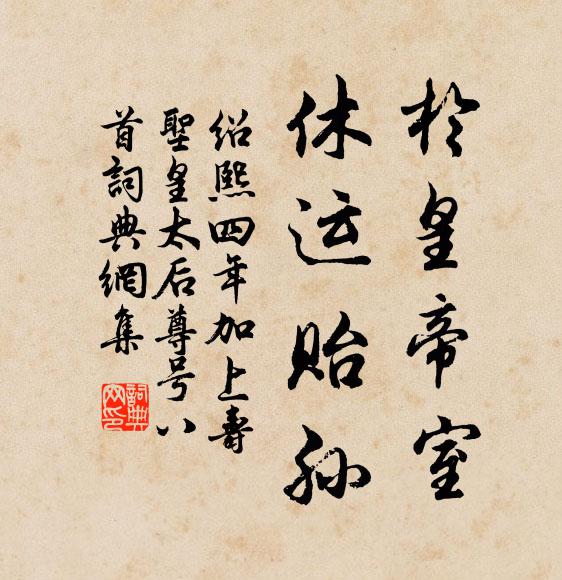 於皇帝室
休运贻孙
绍熙四年加上壽
聖皇太后尊号八
首詞典網集
詞典
网印